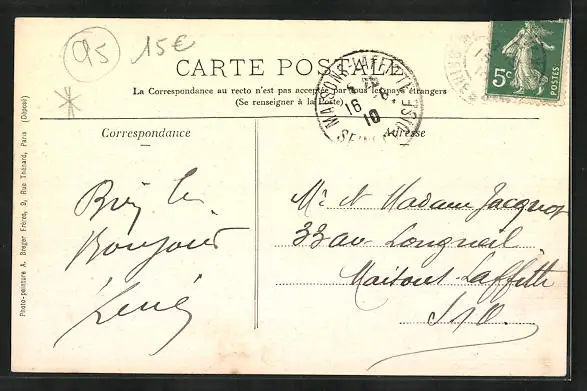 95 15€
CARTE POSTALE
La Correspondance au recto n'est pas acceptée par tous les pays étrangers
(Se renseigner à la Poste)
MAISONS-LAFFITTE
16
10
SEINE
5c
POSTES
Correspondance
Adresse
Photo-peinture A. Breger Frères, 9, Rue Thénard, Paris (Déposé)
Bonjour
René
Mr et Madame Jacquot
33 av Longueil
Maisons Laffitte
S & O.